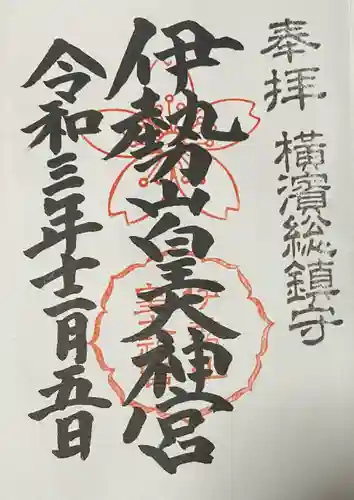 奉拝 横濱総鎮守
伊勢山皇大神宮
令和三年十二月五日